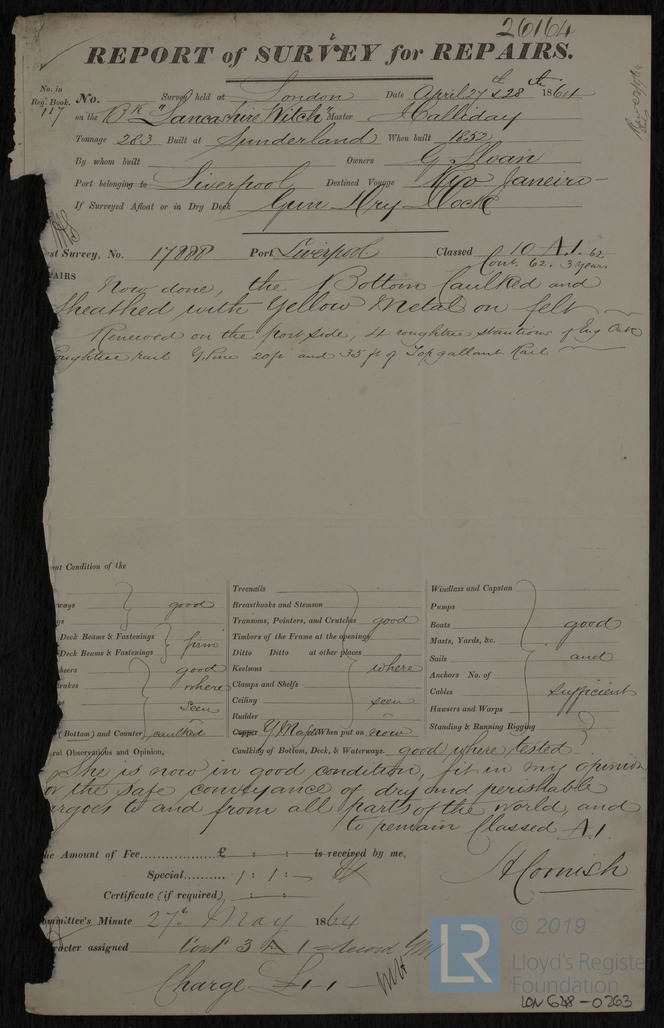 26164
REPORT of SURVEY for REPAIRS.
No. in Reg. Book. 117
No. Survey held at London Date April 27th & 28th 1864
on the Bk "Lancashire Witch" Master Halliday
Tonnage 283 Built at Sunderland When built 1852
By whom built Owners G Sloan
Port belonging to Liverpool Destined Voyage Rio Janeiro
If Surveyed Afloat or in Dry Dock Gun Dry Dock
st Survey, No. 17888 Port Liverpool Classed 10 A.1. 62
Cont. 62. 3 years
PAIRS
Now done, the Bottom Caulked and
Sheathed with Yellow Metal on felt
Renewed on the port side, 4 roughtree stantions of Eng Oak
roughtree rail Y. Pine 20ft and 35 ft of Topgallant Rail
nt Condition of the
ways good
Deck Beams & Fastenings
Deck Beams & Fastenings firm
good
where
seen
(Bottom) and Counter, caulked
Treenails
Breasthooks and Stemson
Transoms, Pointers, and Crutches good
Timbers of the Frame at the openings
Ditto Ditto at other places
Keelsons where
Clamps and Shelfs
Ceiling seen
Rudder
Copper Y Metal When put on now
Caulking of Bottom, Deck, & Waterways. good where tested
Windlass and Capstan
Pumps
Boats good
Masts, Yards, &c.
Sails and
Anchors No. of
Cables sufficient
Hawsers and Warps
Standing & Running Rigging
ral Observations and Opinion,
She is now in good condition, fit in my opinion
for the safe conveyance of dry and perishable
argoes to and from all parts of the world, and
to remain Classed A.1.
he Amount of Fee............... £ : : is received by me,
Special.......... 1 : 1 : —
A Cornish
Certificate (if required)
ommittee's Minute 27th May 1864
racter assigned Cont 3 A 1
Charge £1-1-
© 2019
LR
Lloyd's Register
Foundation
LON 628-0263